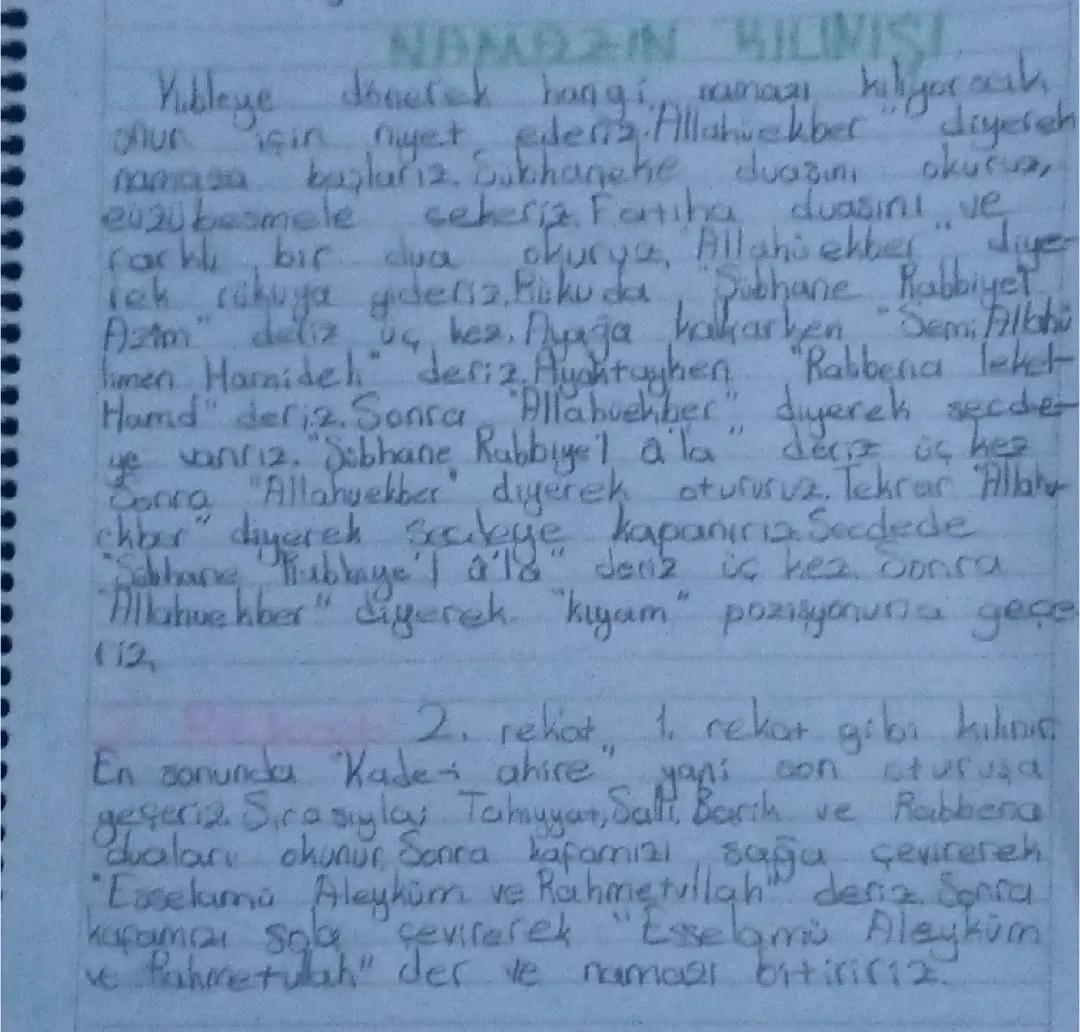 NAMAZIN KILINIŞI
Kıbleye dönerek hangi namazı kılıyorsak
onun için niyet ederiz. Allahüekber" diyerek
namaza başlarız. Sübhaneke duasını okuruz,
eüzübesmele çekeriz. Fatiha duasını ve
farklı bir dua okuruz, "Allahüekber" diye-
rek rükuya gideriz. Rükuda "Sübhane Rabbiyel
Azim" deriz üç kez. Ayağa kalkarken "Semi Allahü
limen Hamideh" deriz. Ayaktayken "Rabbena lekel-
Hamd" deriz. Sonra "Allahuekber" diyerek secde-
ye varırız. "Sübhane Rabbiye'l a'la" deriz üç kez
Sonra "Allahuekber" diyerek otururuz. Tekrar "Allahu
ekber" diyerek secdeye kapanırız. Secdede
"Sübhane Rabbiye'l â'lâ" deriz üç kez. Sonra
"Allahuekber" diyerek "kıyam" pozisyonuna geçe
riz.
2. Rekat 2. rekat 1. rekat gibi kılınır
En sonunda "Kade-i ahire" yani son oturuşa
geçeriz. Sırasıyla; Tahiyyat, Salli, Barik ve Rabbena
duaları okunur. Sonra kafamızı sağa çevirerek
"Esselamü Aleyküm ve Rahmetullah" deriz. Sonra
kafamızı sola çevirerek "Esselamü Aleyküm
ve Rahmetulah" der ve namazı bitiririz.